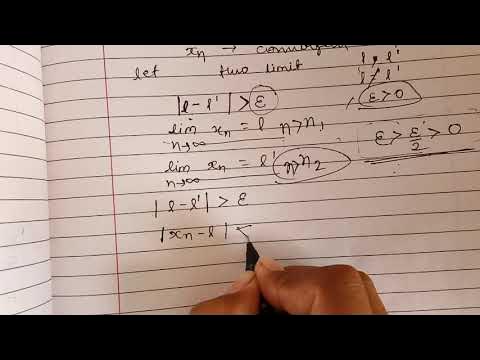 xₙ → convergent
let two limit l, l'
l ≠ l'
|l - l'| > ε
ε > 0
lim xₙ = l n > n₁
n→∞
ε > ε/2 > 0
lim xₙ = l' n > n₂
n→∞
|l - l'| > ε
|xₙ - l| <